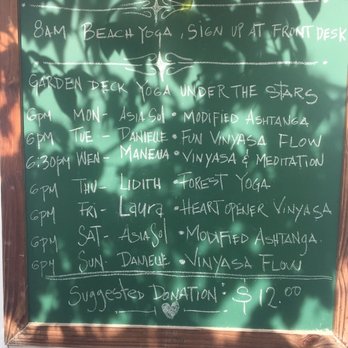 8AM BEACH YOGA, SIGN UP AT FRONT DESK
GARDEN DECK YOGA UNDER THE STARS
6PM MON- ASIA SOL • MODIFIED ASHTANGA
6PM TUE - DANIELLE • FUN VINYASA FLOW
6:30PM WEN- MANEHA • VINYASA & MEDITATION
6PM THU- LIDITH • FOREST YOGA
6PM FRI- Laura • HEART OPENER VINYASA
6PM SAT- ASIA SOL • MODIFIED ASHTANGA.
6PM SUN- DANIELLE • VINYASA FLOW
SUGGESTED DONATION: $12.00